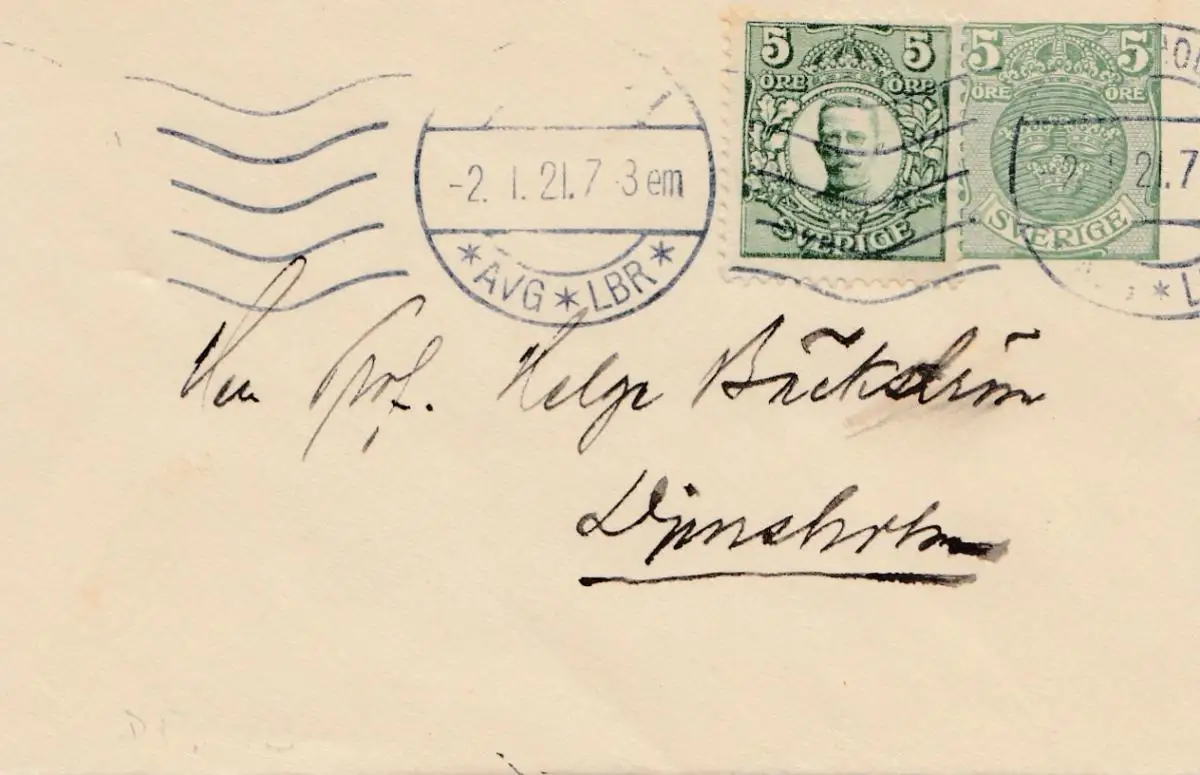 5 5 5 5
ÖRE ÖRE ÖRE ÖRE
-2. 1. 21. 7 -8 em
2 1 21.7
SVERIGE SVERIGE
* AVG * LBR *
* L
Herr Prof. Helge Bäckström
Djursholm